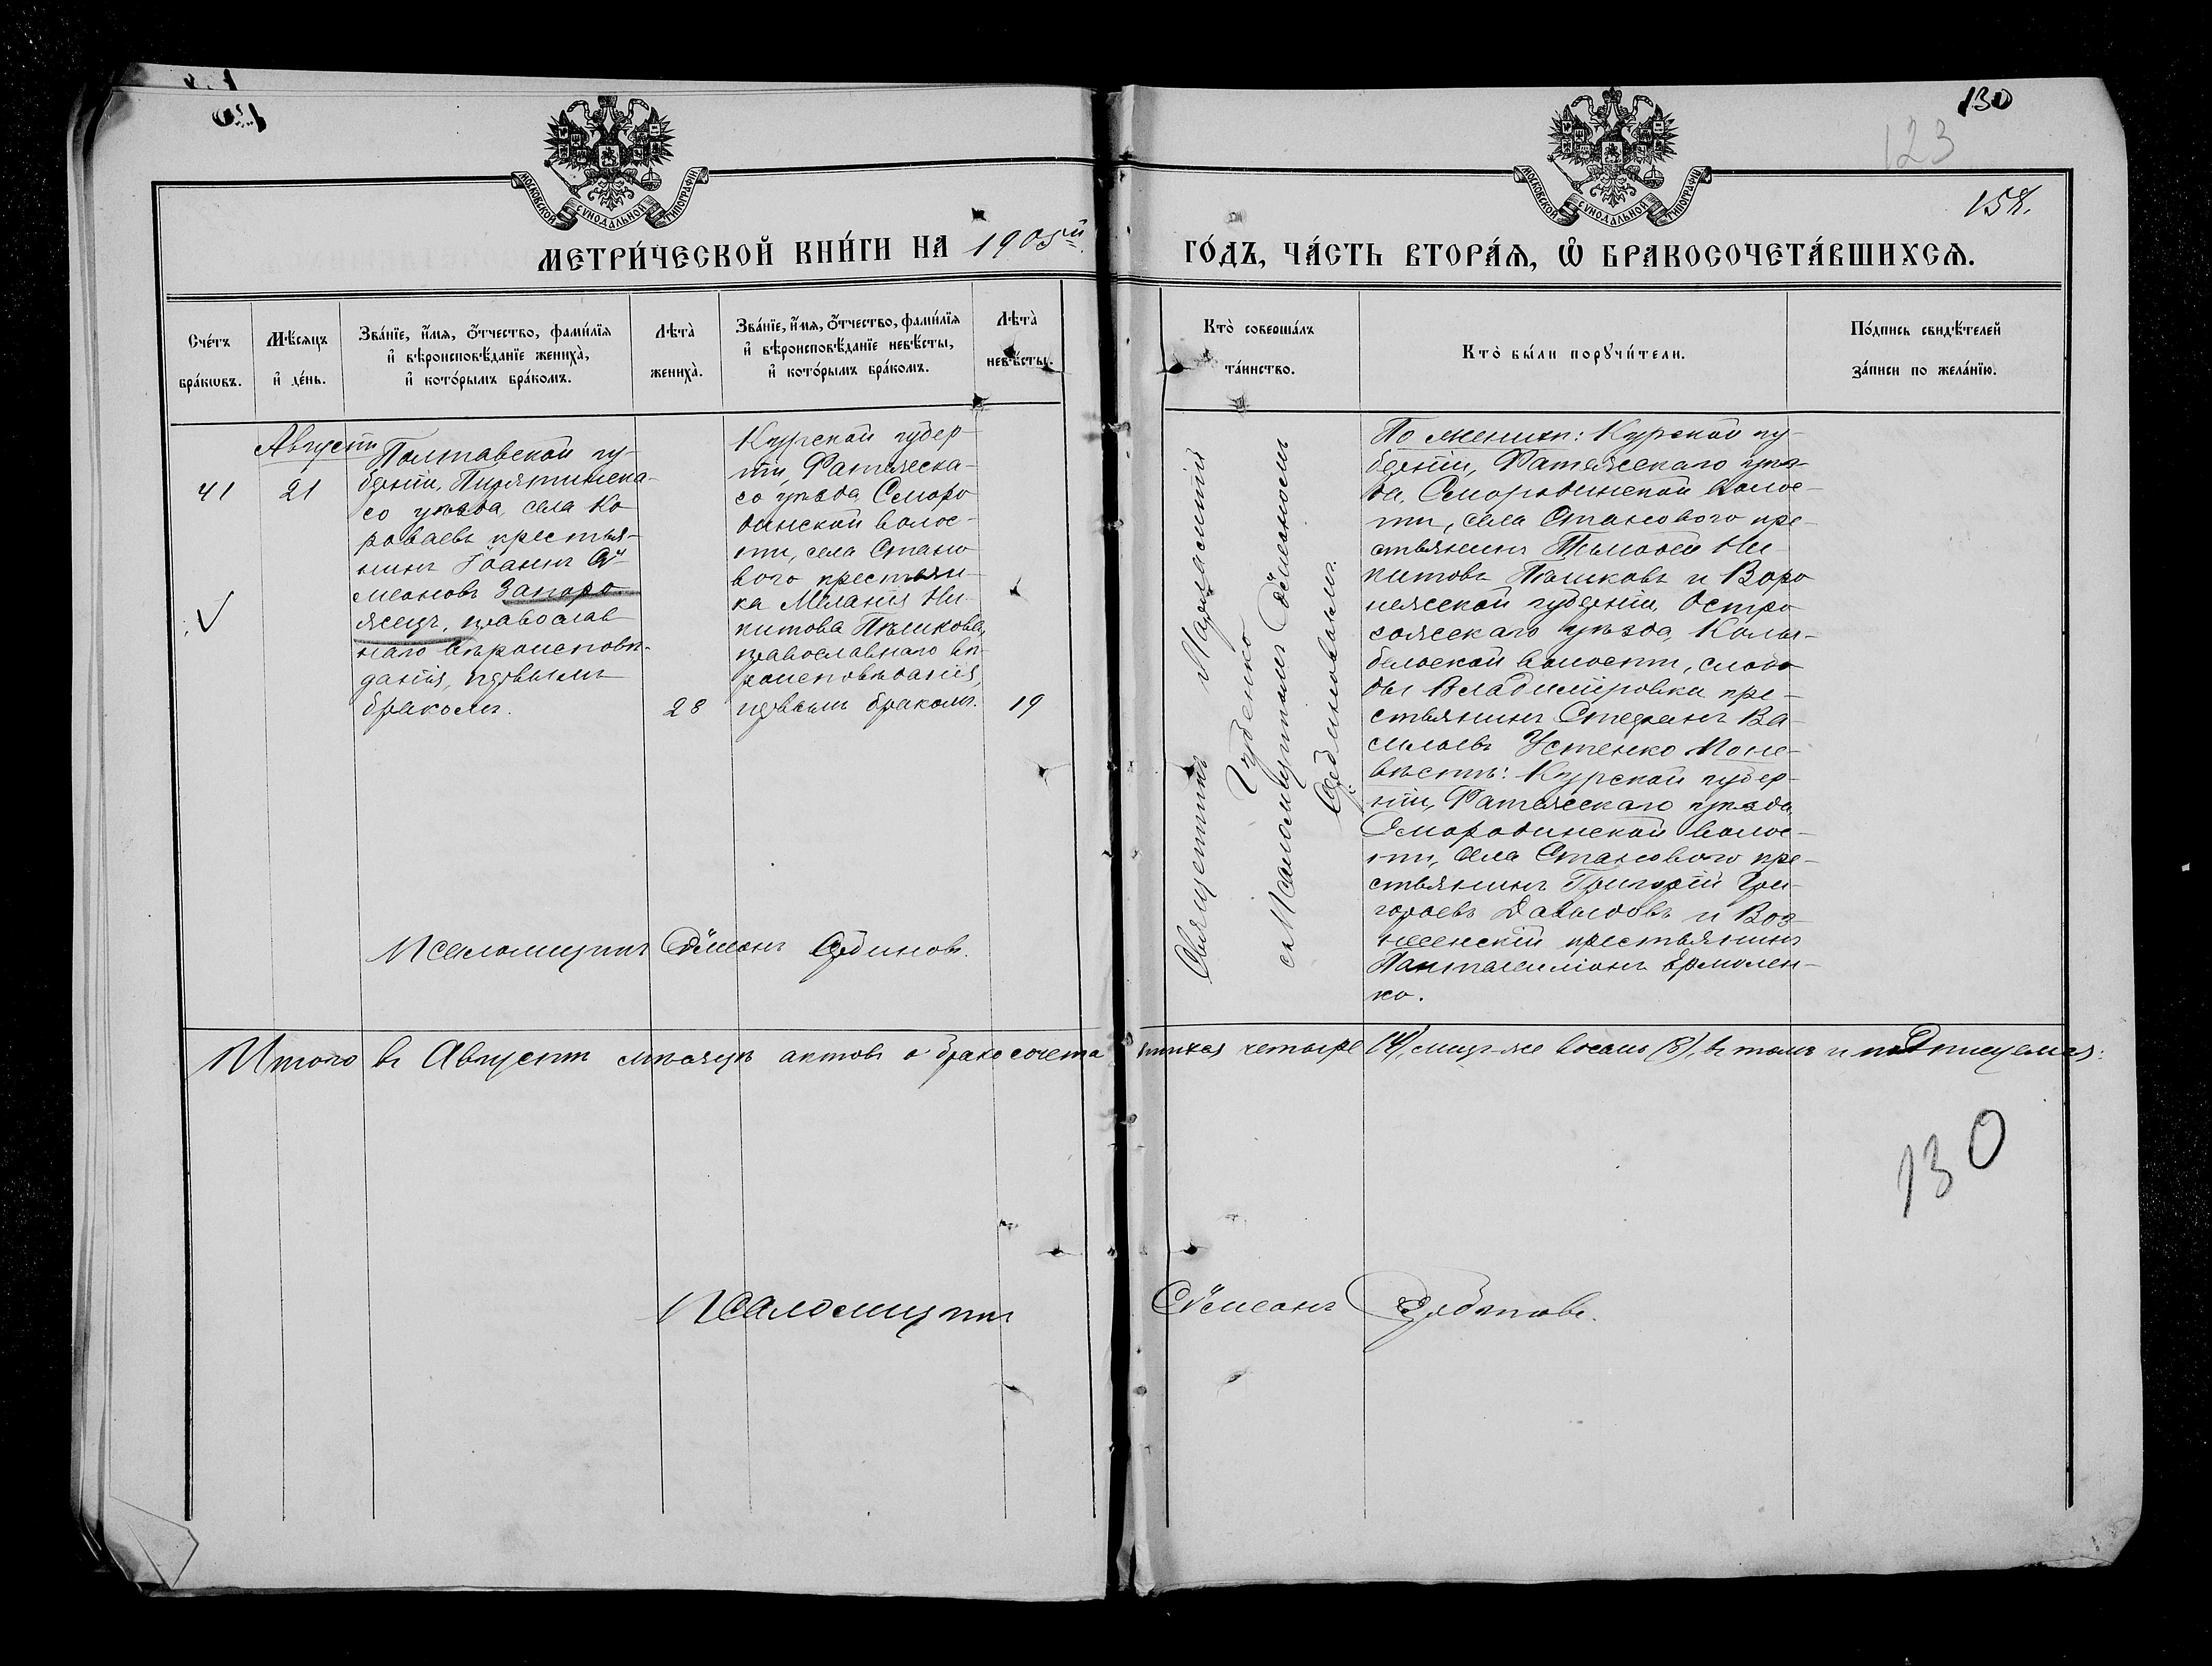 130
123
158.
МОСКОВСКОЙ СУНОДАЛЬНОЙ ТИПОГРАФІИ
МОСКОВСКОЙ СУНОДАЛЬНОЙ ТИПОГРАФІИ
МЕТРИ́ЧЕСКОЙ КНИ́ГИ НА 1905ый
ГО́ДЪ, ЧА́СТЬ ВТОРА́Ѧ, Ѽ БРАКОСОЧЕТА́ВШИХСѦ.
Сче́тъ
бра́кѡвъ.
Мѣ́сяцъ
и҆ де́нь.
Зва́нїе, и҆́мя, ѻ҆́тчество, фами́лїя
и҆ вѣроисповѣ́данїе жениха̀,
и҆ кото́рымъ бра́комъ.
Лѣта̀
жениха̀.
Зва́нїе, и҆́мя, ѻ҆́тчество, фами́лїя
и҆ вѣроисповѣ́данїе невѣ́сты,
и҆ кото́рымъ бра́комъ.
Лѣта̀
невѣ́сты.
Кто̀ соверша́лъ
та́инство.
Кто̀ бы́ли порꙋчи́тели.
По́дпись свидѣ́телей
за́писи по жела́нїю.
Августъ
41
21
Полтавской гу-
берніи, Пирятинска-
го уѣзда, села Ко
роваевъ крестья-
нинъ Іоаннъ Си-
меоновъ Запоро-
жецъ, православ
наго вѣроисповѣ-
данія, первымъ
бракомъ.
28
Курской губер-
ніи, Фатежска-
го уѣзда, Сморо
динской волос-
ти, села Стано
вого крестьян-
ка Меланія Ни-
китова Пѣшкова,
православнаго вѣ-
роисповѣданія,
первымъ бракомъ.
19
Священникъ
Гуденко
съ Псаломщикомъ Сѵмеономъ
По женихѣ: Курской гу-
берніи, Фатежскаго уѣз-
да, Смородинской волос-
ти, села Станового кре-
стьянинъ Тимофей Ни-
китовъ Пѣшковъ и Воро
нежской губерніи, Остро
гожскаго уѣзда,
волости, слобо
ды Владиміровки кре-
стьянинъ Стефанъ Ва-
сильевъ Устенко По не-
вѣстѣ: Курской губер-
ніи, Фатежскаго уѣзда,
Смородинской волос-
ти, села Станового кре-
стьянинъ Григорій Гри-
горьевъ Давыдовъ и Воз-
несенскій крестьянинъ
Пантелеимонъ Ермолен-
ко.
Псаломщикъ Сѵмеонъ
Итого въ Августѣ мѣсяцѣ актовъ о бракосочета вшихся четыре (4), лицъ-же восемь (8), въ томъ и подписуемся:
130
Псаломщикъ Сѵмеонъ